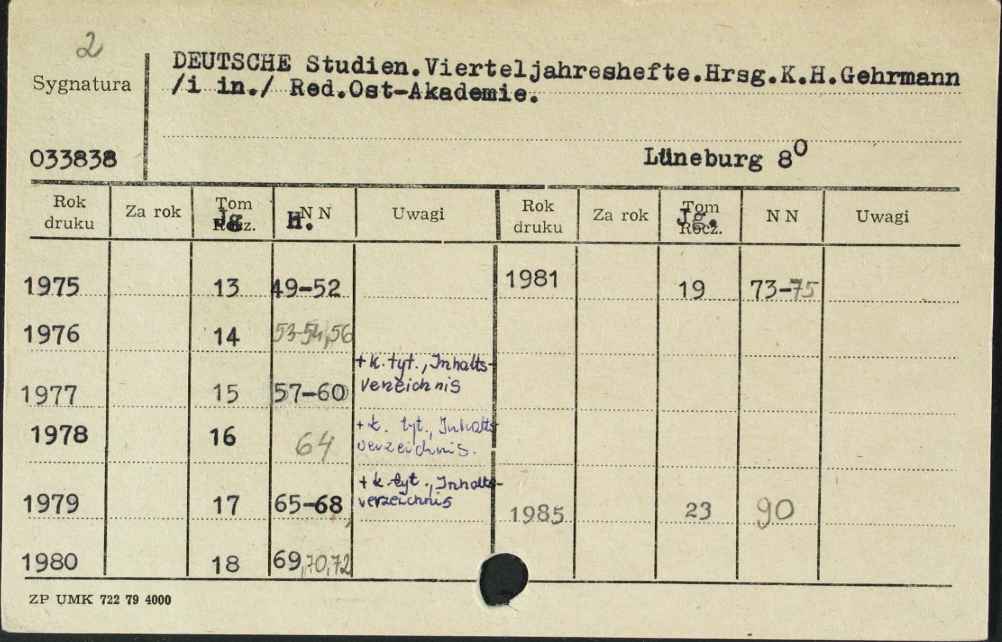 2
Sygnatura
DEUTSCHE Studien.Vierteljahreshefte.Hrsg.K.H.Gehrmann
/i in./ Red.Ost-Akademie.
033838
Lüneburg 8⁰
Rok druku Za rok Tom Rocz. Jg. NN H. Uwagi Rok druku Za rok Tom Rocz. Jg. NN Uwagi
1975 13 49-52 1981 19 73-75
1976 14 53-54,56
1977 15 57-60 + k. tyt., Inhalts-
verzeichnis
1978 16 64 + k. tyt., Inhalts-
verzeichnis.
1979 17 65-68 + k. tyt., Inhalts-
verzeichnis 1985 23 90
1980 18 69,70,72
ZP UMK 722 79 4000